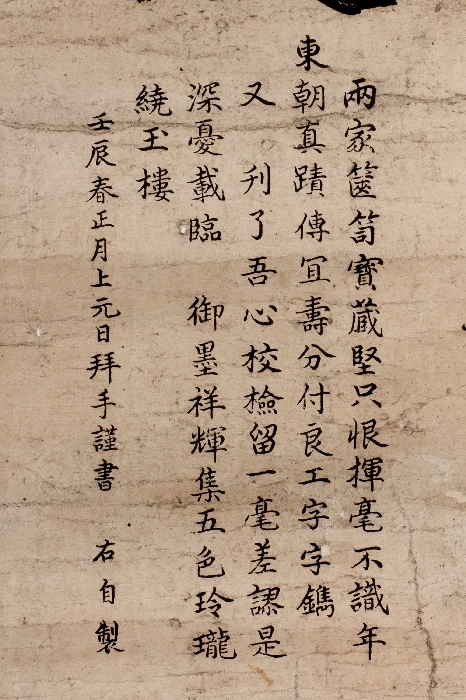 兩家篋笥寶蔵堅只恨揮毫不識年
東朝真蹟傳冝壽分付良工字字鐫
又刋了吾心校檢留一毫差謬是
深憂載臨御墨祥輝集五色玲瓏
繞玉樓
壬辰春正月上元日拜手謹書右自製